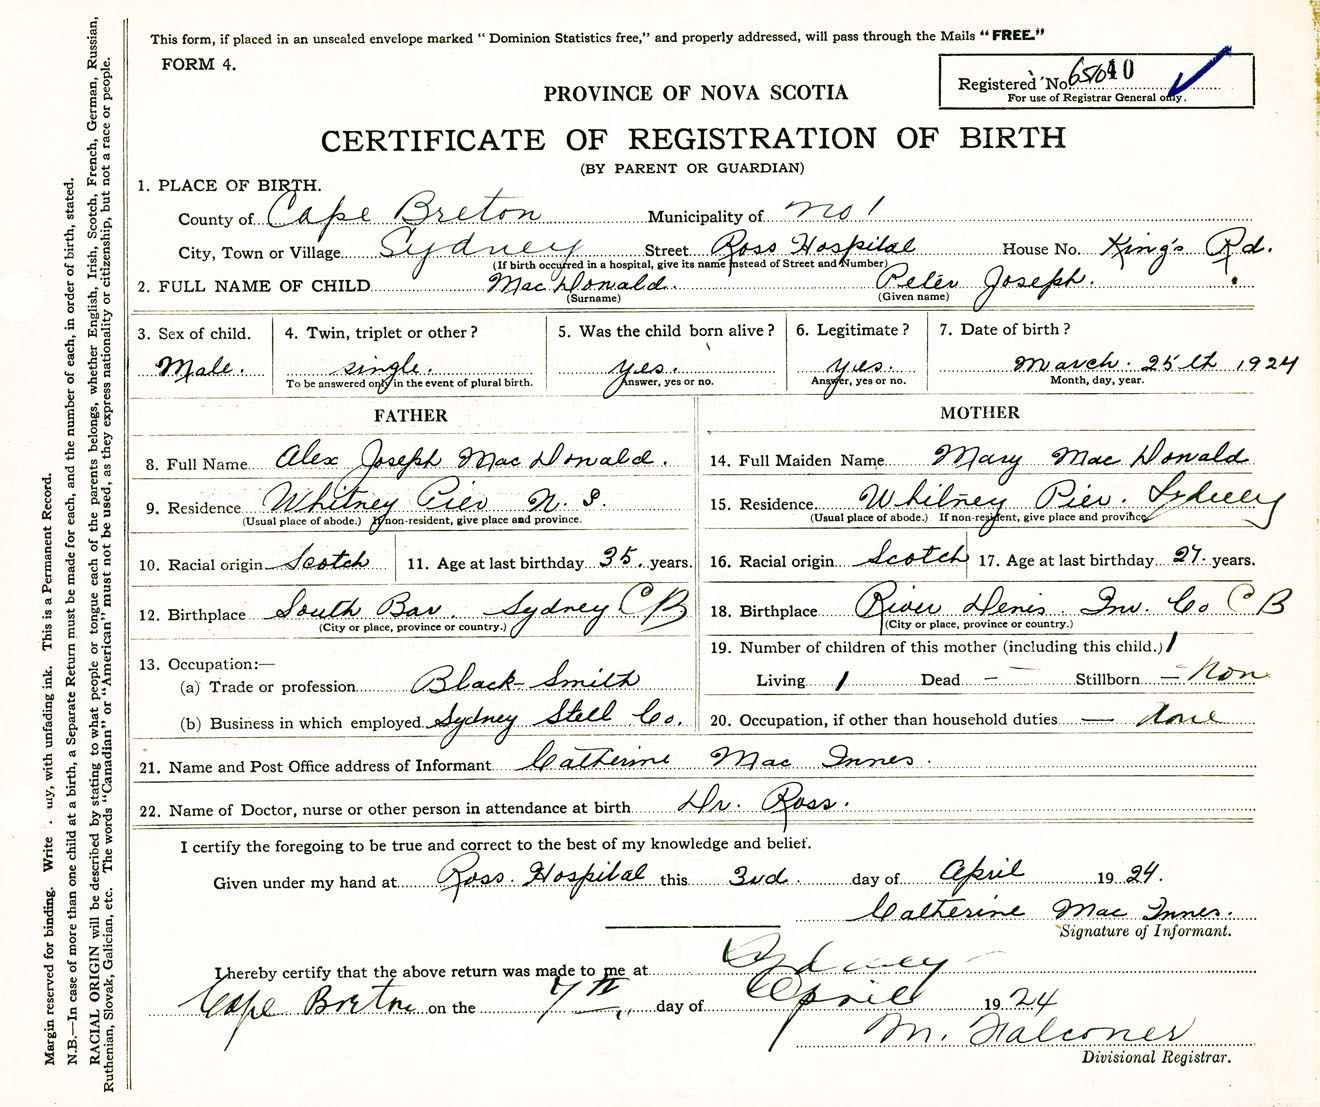 This form, if placed in an unsealed envelope marked " Dominion Statistics free," and properly addressed, will pass through the Mails "FREE."
FORM 4.
Registered No. 10
For use of Registrar General only.
PROVINCE OF NOVA SCOTIA
CERTIFICATE OF REGISTRATION OF BIRTH
(BY PARENT OR GUARDIAN)
1. PLACE OF BIRTH.
County of Cape Breton Municipality of No 1
City, Town or Village Sydney Street Ross Hospital House No. King's Rd.
(If birth occurred in a hospital, give its name instead of Street and Number)
2. FULL NAME OF CHILD MacDonald. Peter Joseph.
(Surname) (Given name)
3. Sex of child. 4. Twin, triplet or other? 5. Was the child born alive? 6. Legitimate? 7. Date of birth?
Male. single. yes. yes. March. 25th 1924
To be answered only in the event of plural birth. Answer, yes or no. Answer, yes or no. Month, day, year.
FATHER MOTHER
8. Full Name Alex Joseph MacDonald. 14. Full Maiden Name Mary MacDonald
9. Residence Whitney Pier N. S. 15. Residence. Whitney Pier. Sydney
(Usual place of abode.) If non-resident, give place and province. (Usual place of abode.) If non-resident, give place and province
10. Racial origin Scotch 11. Age at last birthday 35. years. 16. Racial origin Scotch 17. Age at last birthday 27. years.
12. Birthplace South Bar. Sydney CB 18. Birthplace River Denis Inv. Co CB
(City or place, province or country.) (City or place, province or country.)
13. Occupation:— 19. Number of children of this mother (including this child.) 1
(a) Trade or profession Black-Smith Living 1 Dead — Stillborn — Non
(b) Business in which employed Sydney Stell Co. 20. Occupation, if other than household duties — None
21. Name and Post Office address of Informant Catherine Mac Innes.
22. Name of Doctor, nurse or other person in attendance at birth Dr. Ross.
I certify the foregoing to be true and correct to the best of my knowledge and belief.
Given under my hand at Ross. Hospital this 3rd. day of April 1924.
Catherine Mac Innes.
Signature of Informant.
I hereby certify that the above return was made to me at Sydney
Cape Breton on the 7th day of April 1924
M. Falconer
Divisional Registrar.
Margin reserved for binding. Write with unfading ink. This is a Permanent Record.
N.B.—In case of more than one child at a birth, a Separate Return must be made for each, and the number of each, in order of birth, stated.
RACIAL ORIGIN will be described by stating to what people or tongue each of the parents belongs, whether English, Irish, Scotch, French, German, Russian,
Ruthenian, Slovak, Galician, etc. The words "Canadian" or "American" must not be used, as they express nationality or citizenship, but not a race or people.